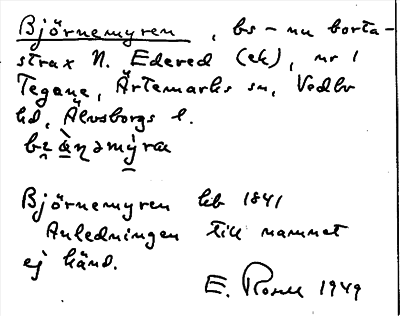 Björnemyren, bs – nu borta-
strax N. Edered (ek), nr 1
Tegane, Ärtemarks sn, Vedbo
hd, Älvsborgs l.
Björnemyren hb 1841
Anledningen till namnet
ej känd.
E. 1949